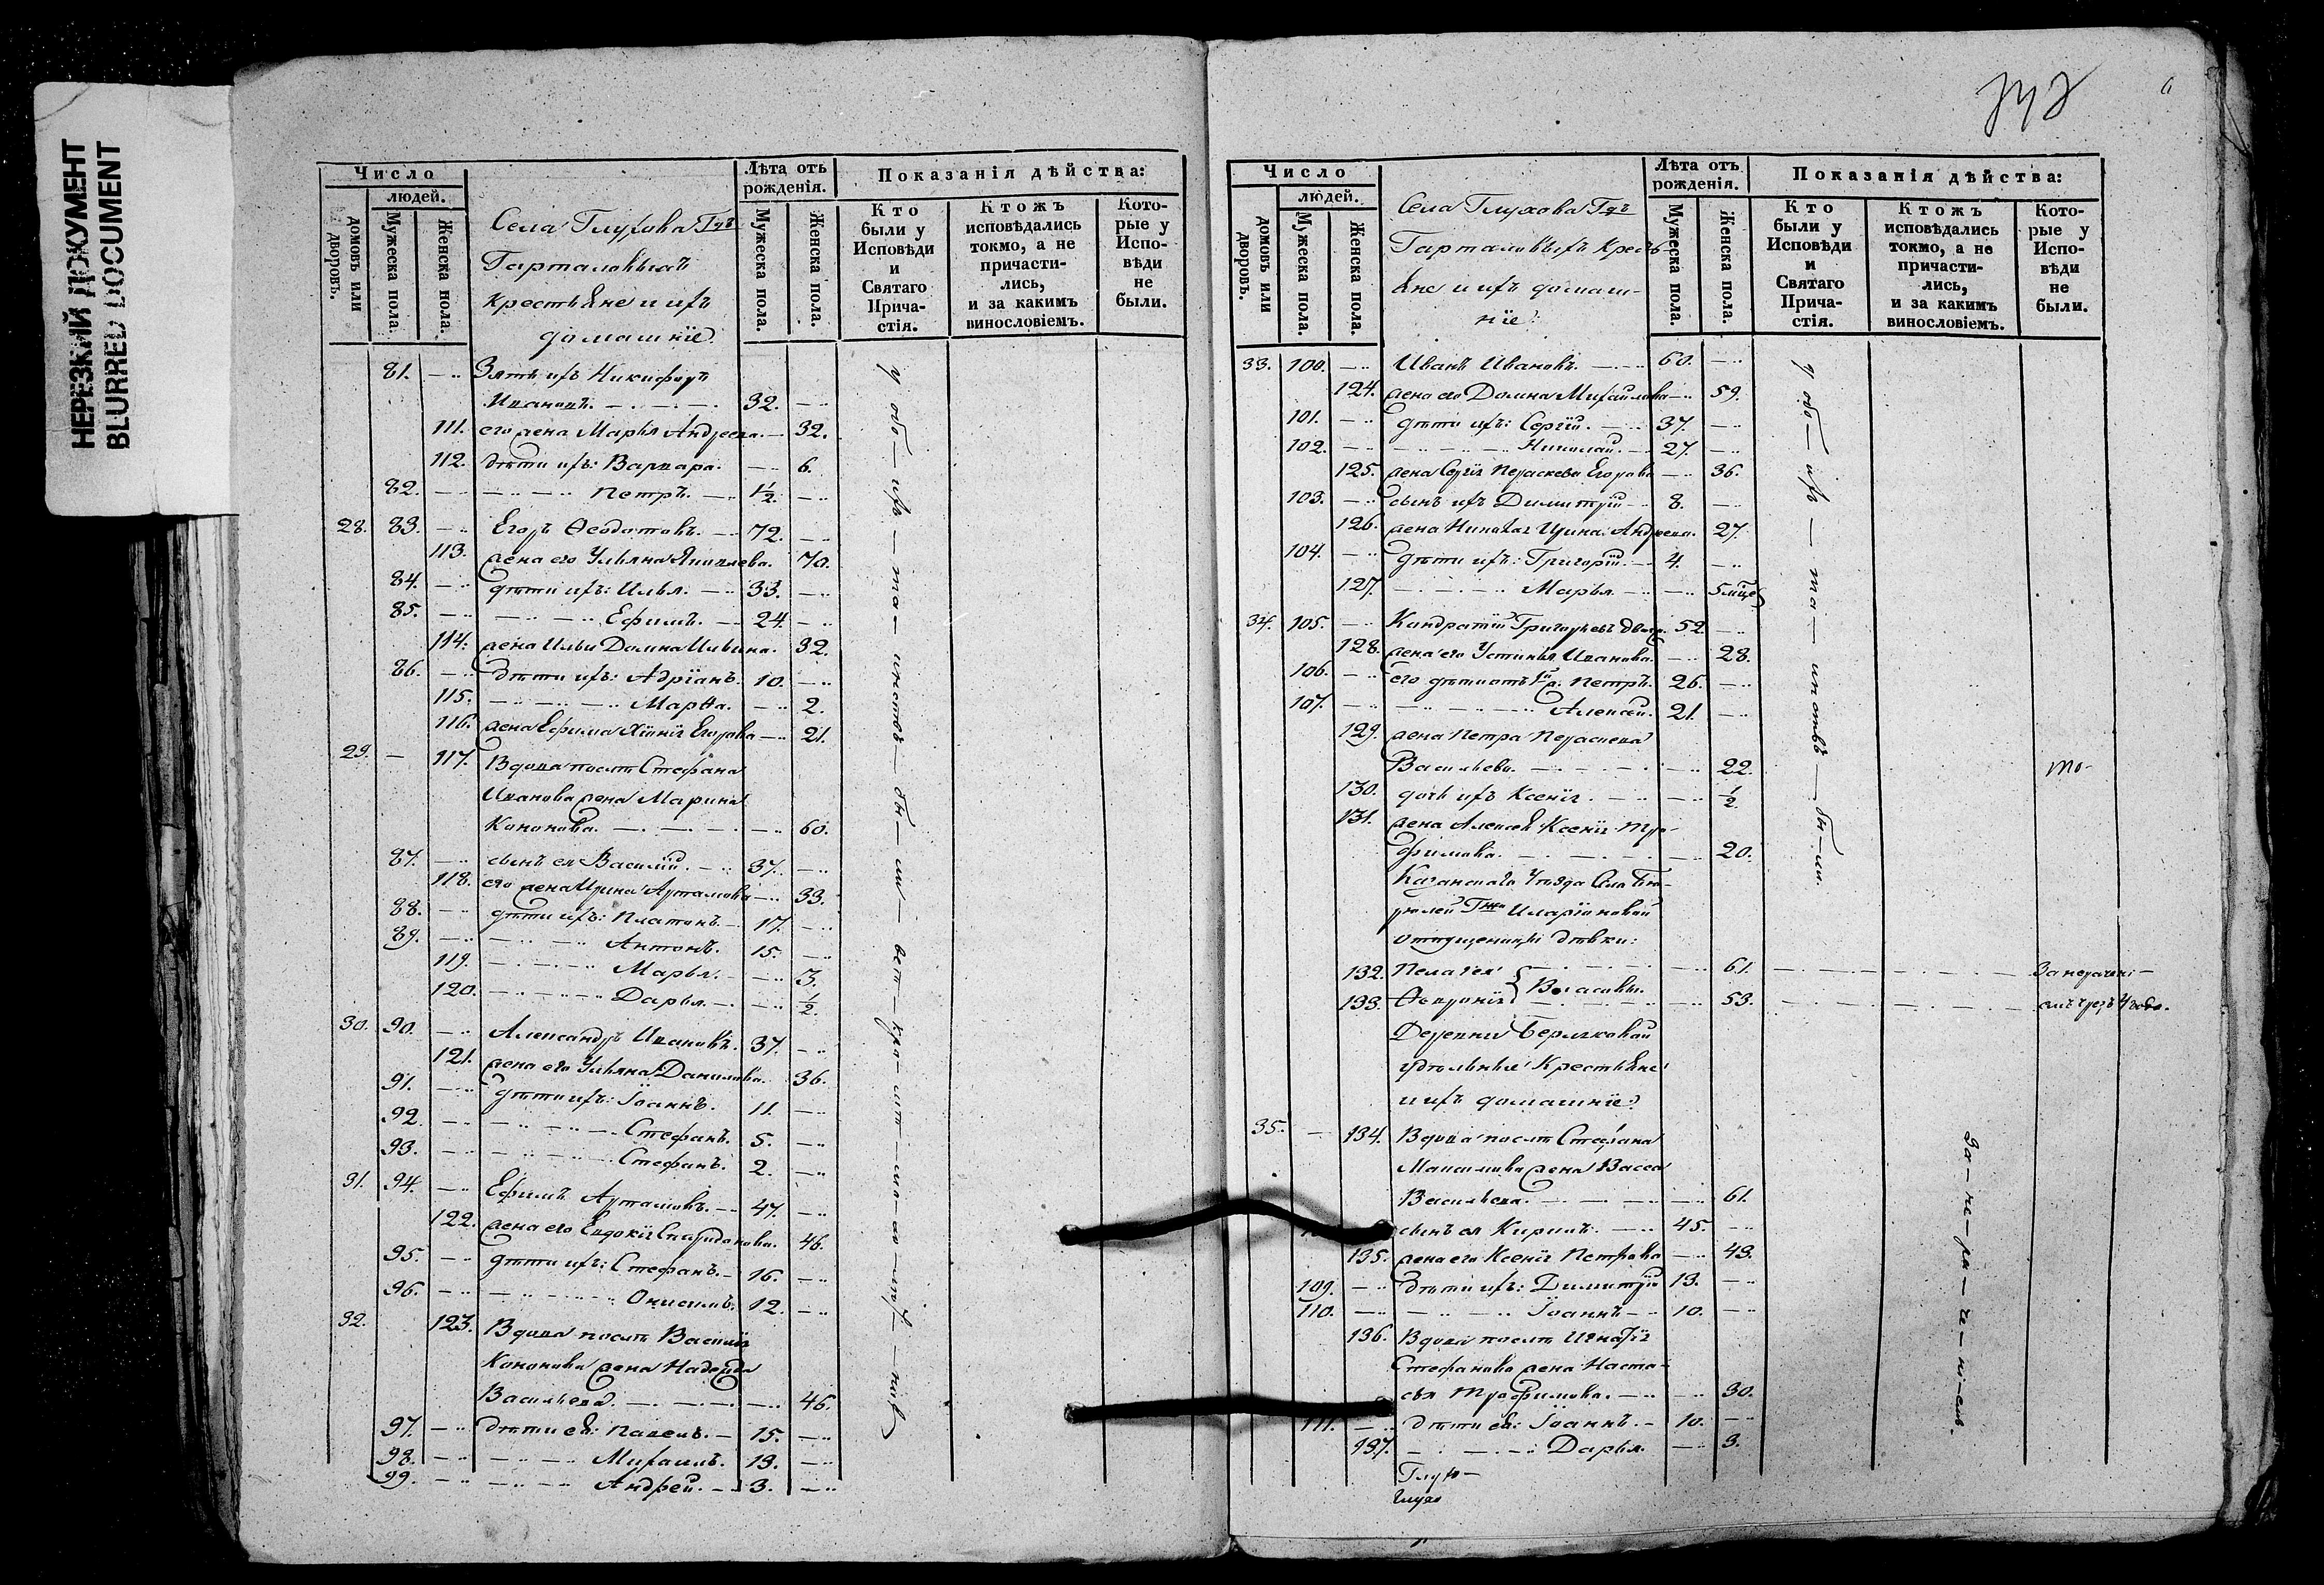 НЕРЕЗКИЙ ДОКУМЕНТ
BLURRED DOCUMENT
Число
людей.
домовъ или дворовъ.
Мужеска пола.
Женска пола.
Села Глухова Гдъ
Гарталовыхъ
крестьяне и ихъ
домашніе
Лѣта отъ рожденія.
Мужеска пола.
Женска пола.
Показанія дѣйства:
Кто были у Исповѣди и Святаго Прича-стія.
Ктожъ исповѣдались токмо, а не причасти-лись, и за какимъ винословіемъ.
Кото-рые у Испо-вѣди не были.
81. Зять ихъ Никифоръ
Ивановъ. 32.
111. его жена Марья Андреева. 32.
112. дѣти ихъ: Варвара. 6.
82. Петръ. ½.
28. 83. Егоръ Ѳеодотовъ. 72.
113. жена его Ульяна 70.
84. дѣти ихъ: Илья. 33.
85. Ефимъ. 24.
114. жена Ильи Домна Ильина. 32.
86. дѣти ихъ: Адріанъ. 10.
115. Марѳа. 2.
116. жена Ефима Егорова 21.
29. 117. Вдова послѣ Стефана
Иванова жена Марина
Кононова. 60.
87. сынъ ея Василій. 37.
118. его жена Ирина Артамова 33.
88. дѣти ихъ: Платонъ. 17.
89. Антонъ. 15.
119. Марья. 3.
120. Дарья. ½.
30. 90. Александръ Ивановъ. 37.
121. жена его Ульяна Данилова. 36.
91. дѣти ихъ: Іоаннъ. 11.
92. Стефанъ. 5.
93. Стефанъ. 2.
31. 94. Ефимъ Артамовъ. 47.
122. жена его Евдокія Спиридонова. 46.
95. дѣти ихъ: Стефанъ. 16.
96. Онисимъ. 12.
32. 123. Вдова послѣ Василія
Кононова жена Надежда
Васильева. 46.
97. дѣти ея: Павелъ. 15.
98. Михаилъ. 13.
99. Андрей. 3.
Число
людей.
домовъ или дворовъ.
Мужеска пола.
Женска пола.
Села Глухова Гдъ
Гарталовыхъ кресть
яне и ихъ домаш-
ніе:
Лѣта отъ рожденія.
Мужеска пола.
Женска пола.
Показанія дѣйства:
Кто были у Исповѣди и Святаго Прича-стія.
Ктожъ исповѣдались токмо, а не причасти-лись, и за какимъ винословіемъ.
Кото-рые у Испо-вѣди не были.
33. 100. Иванъ Ивановъ. 60.
124. жена его Домна Михайлова 59.
101. дѣти ихъ: Сергій. 37.
102. Николай. 27.
125. жена Сергія Параскева Егорова 36.
103. сынъ ихъ Димитрій 8.
126. жена Николая Ирина Андреева. 27.
104. дѣти ихъ: Григорій. 4.
127. Марья 5
34. 105. Кандратій Григорьевъ 52.
128. жена его Устинья Иванова. 28.
106. его дѣти отъ Петръ. 26.
107. Алексѣй. 21.
129. жена Петра Параскева
Васильева. 22. то-
130. дочь ихъ Ксенія. ½.
131. жена Алексѣя Ксенія Тро-
фимова. 20.
Казанскаго Уѣзда Села
Гжи Иларіоновой
отпущенныя дѣвки:
132. Пелагея 61. За нераченi-
133. Ѳевронія Власовы. 53. емъ
Деревни Берлжковой
удѣльные крестьяне
и ихъ домашніе:
35. 134. Вдова послѣ Стефана
Максимова жена Васса
Васильева. 61.
сынъ ея Кирилъ. 45.
135. жена его Ксенія Петрова 43.
109. дѣти ихъ: Димитрій 13.
110. Іоаннъ 10.
136. Вдова послѣ Игнатія
Стефанова жена Наста-
сья Трофимова. 30.
111. дѣти ея: Іоаннъ. 10.
137. Дарья. 3.
За-не-ра-че-ні-емъ.